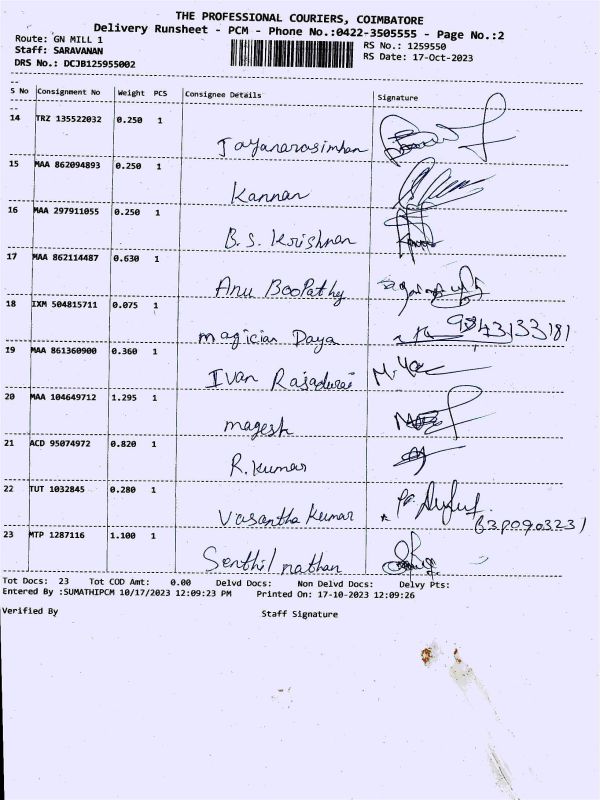 THE PROFESSIONAL COURIERS, COIMBATORE
Delivery Runsheet - PCM - Phone No.:0422-3505555 - Page No.:2
Route: GN MILL 1 RS No.: 1259550
Staff: SARAVANAN RS Date: 17-Oct-2023
DRS No.: DCJB125955002
S No Consignment No Weight PCS Consignee Details Signature
14 TRZ 135522032 0.250 1
Jayanarasimhan
15 MAA 862094893 0.250 1
Kannan
16 MAA 297911055 0.250 1
B.S. Krishnan
17 MAA 862114487 0.630 1
Anu Boopathy
18 IXM 504815711 0.075 1
magician Daya 9843133181
19 MAA 861360900 0.360 1
Ivan Rajadurai
20 MAA 104649712 1.295 1
magesh
21 ACD 95074972 0.820 1
R. Kumar
22 TUT 1032845 0.280 1
Vasantha Kumar
23 MTP 1287116 1.100 1
Senthil nathan
Tot Docs: 23 Tot COD Amt: 0.00 Delvd Docs: Non Delvd Docs: Delvy Pts:
Entered By :SUMATHIPCM 10/17/2023 12:09:23 PM Printed On: 17-10-2023 12:09:26
Verified By Staff Signature